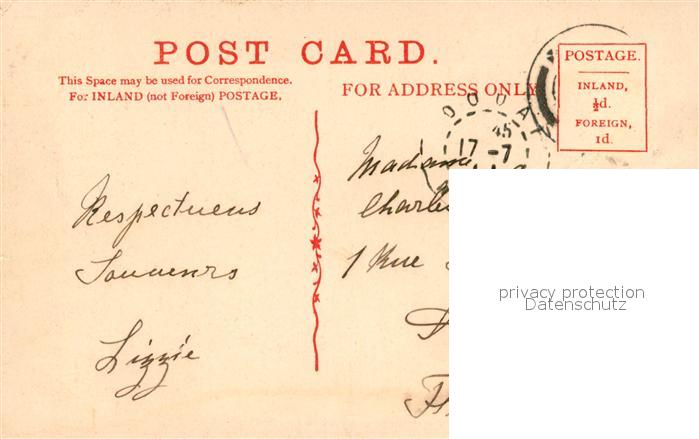 POST CARD.
This Space may be used for Correspondence.
For INLAND (not Foreign) POSTAGE.
FOR ADDRESS ONLY
POSTAGE.
INLAND,
½d.
FOREIGN,
1d.
DOUAI
45
17-7
Respectueus
Souvenirs
Lizzie
Madame
1 Rue
privacy protection
Datenschutz